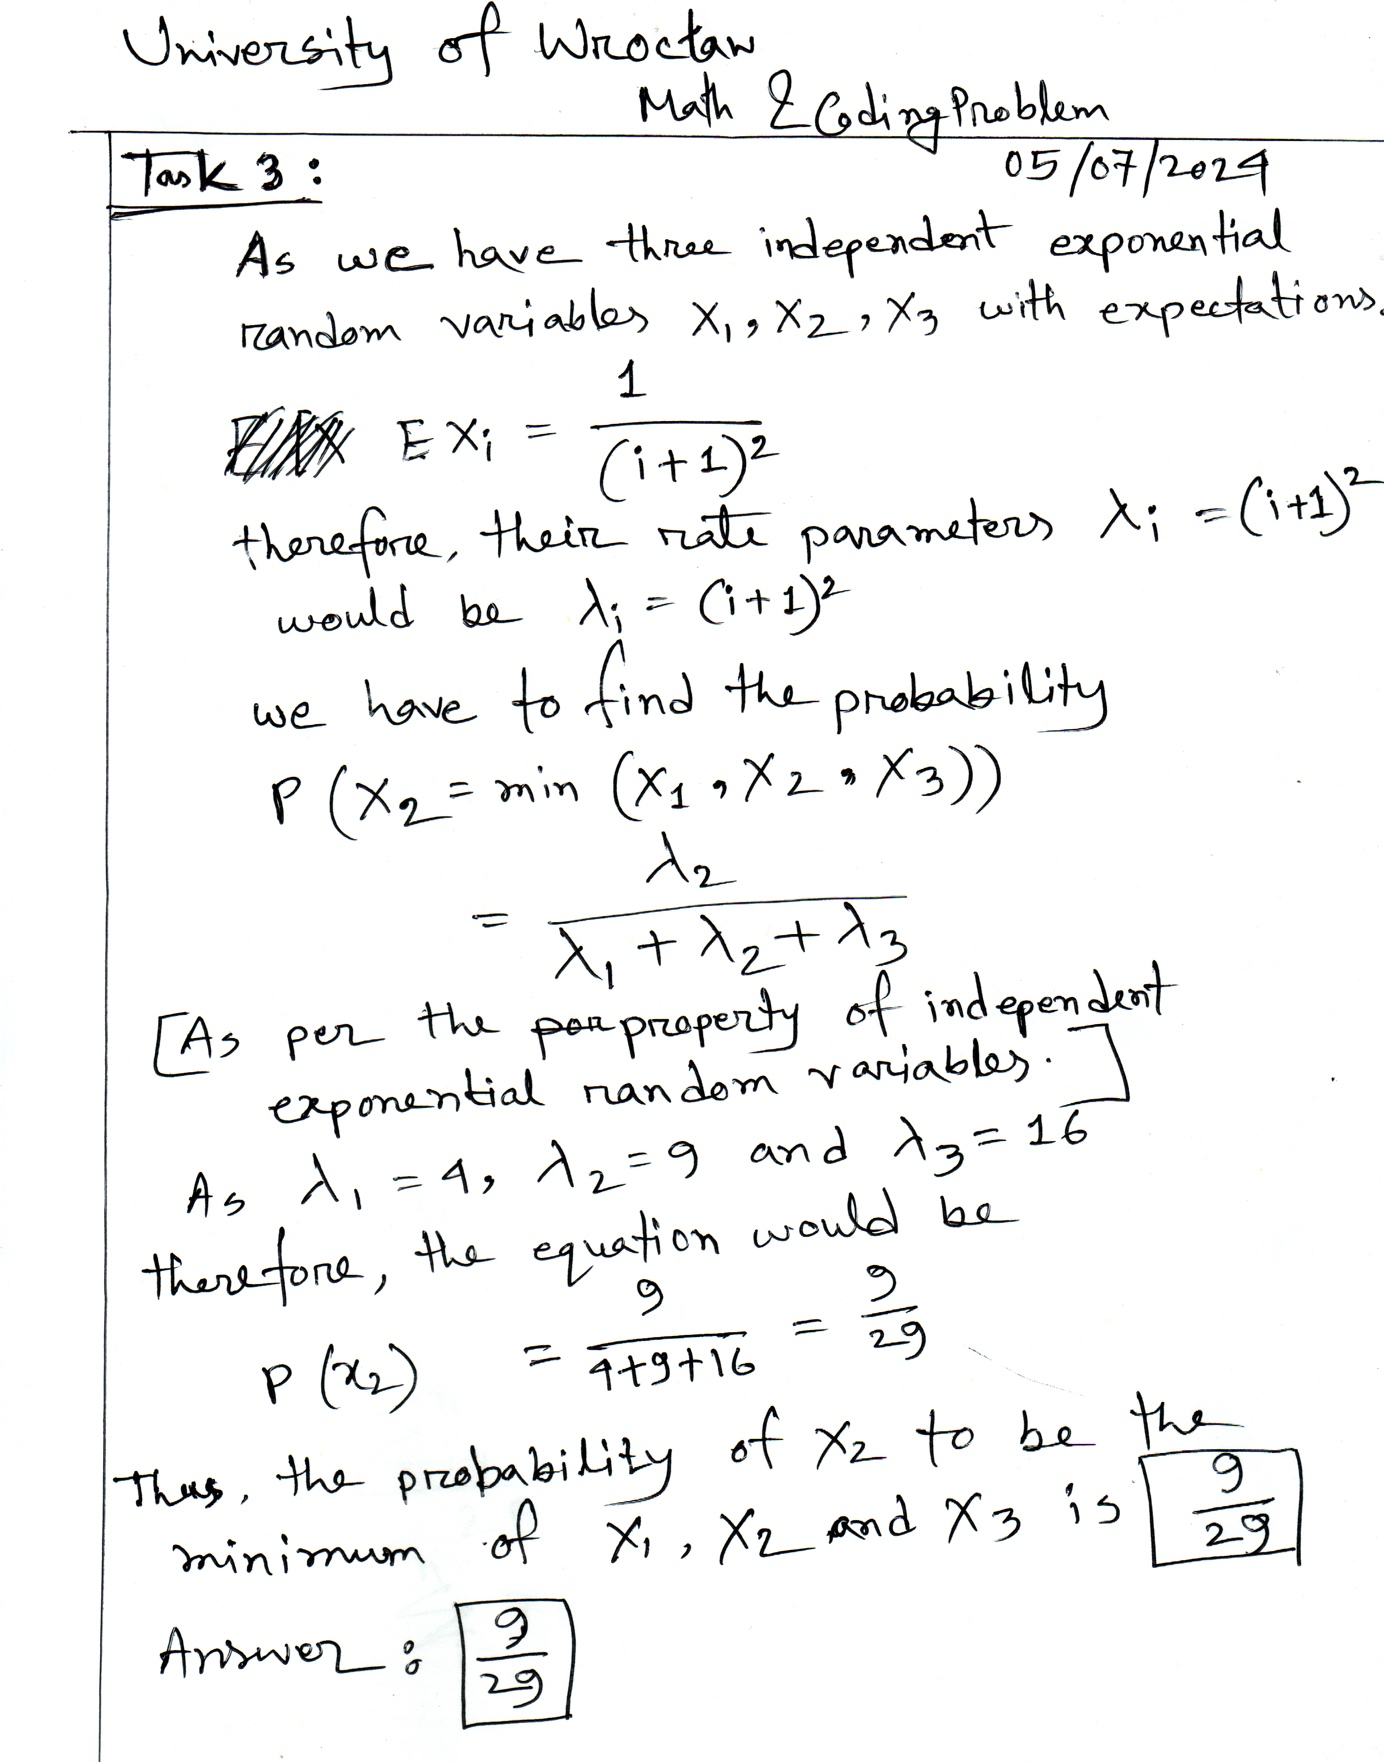 University of Wroctaw
Math & Coding Problem
Task 3:
05/07/2024
As we have three independent exponential
random variables X₁, X₂, X₃ with expectations.
E Xi = 1/(i+1)²
therefore, their rate parameters λi = (i+1)²
would be λi = (i+1)²
we have to find the probability
P (X₂ = min (X₁, X₂, X₃))
= λ₂/(λ₁ + λ₂ + λ₃)
[As per the property of independent
exponential random variables.]
As λ₁ = 4, λ₂ = 9 and λ₃ = 16
therefore, the equation would be
P (x₂) = 9/(4+9+16) = 9/29
Thus, the probability of X₂ to be the
minimum of X₁, X₂ and X₃ is 9/29
Answer: 9/29